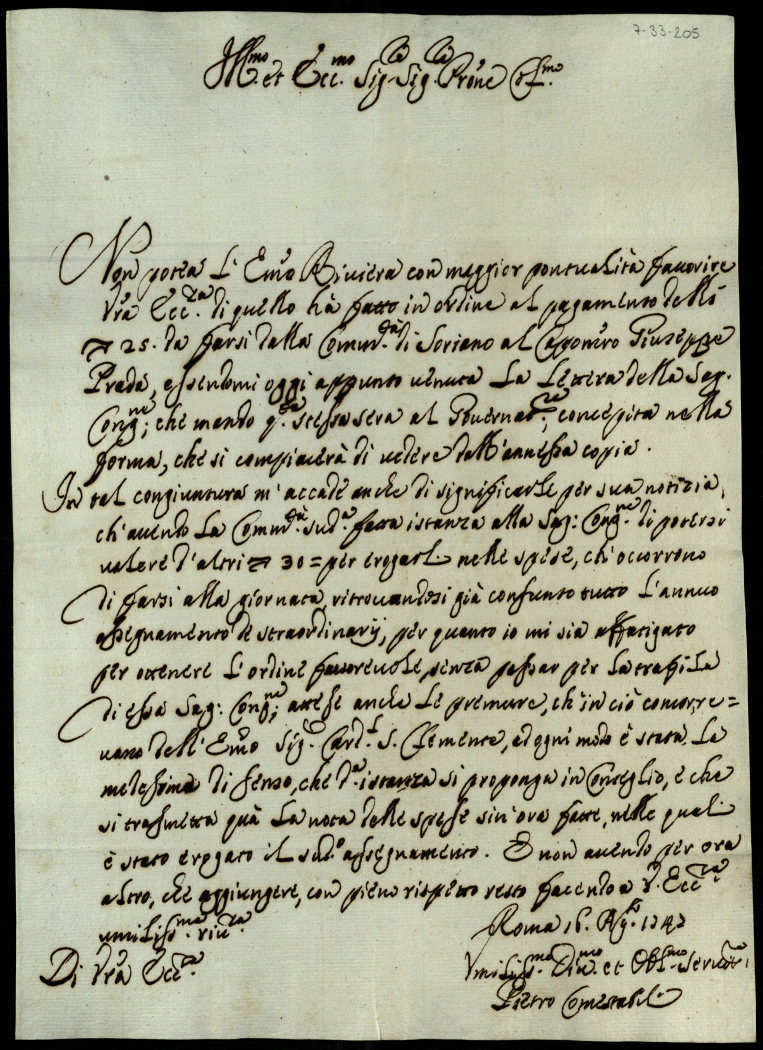 7-33-205
Ill.mo et Ecc.mo Sig.re Sig.re Prone Col.mo
Non potea L'Emo Riviera con maggior pontualità favorire
Vra Ecc.za di quello hà fatto in ordine al pagamento delli
25. da farsi dalla Commu.tà di Soriano al Capomro Giuseppe
Prada, essendomi oggi appunto venuta La Lettera della Sag.
Cong.ne; che mando q.ta stessa sera al Governat.re, concepita nella
forma, che si compiacerà di vedere dall'annessa copia.
In tal congiuntura m'accade anche di significarle per sua notizia,
ch'avendo La Commu.tà sud.a fatta istanza alla Sag: Cong.ne di potersi
valere d'altri 30 = per erogarli nelle spese, ch'occorrono
di farsi alla giornata, ritrovandosi già consunto tutto L'annuo
assegnamento de straordinarij, per quanto io mi sia affatigato
per ottenere L'ordine favorevole, senza passar per La trafila
di essa Sag: Cong.ne; attese anche Le premure, ch'in ciò concorre=
vano dell'Emo Sig.r Card.l S. Clemente, ad ogni modo è stata La
medesima di senso, che d.a istanza si proponga in Conseglio, e che
si trasmetta quà La nota delle spese sin'ora fatte, nelle quali
è stato erogato il sud.o assegnamento. E non avendo per ora
altro, che aggiungere, con pieno rispetto resto facendo a V. Ecc.za
umiliss.ma riv.za
Roma 16. Ag.to
Di Vra Ecc.za
Umiliss.mo Div.mo et Obl.mo Servit.re
Pietro Comestabili